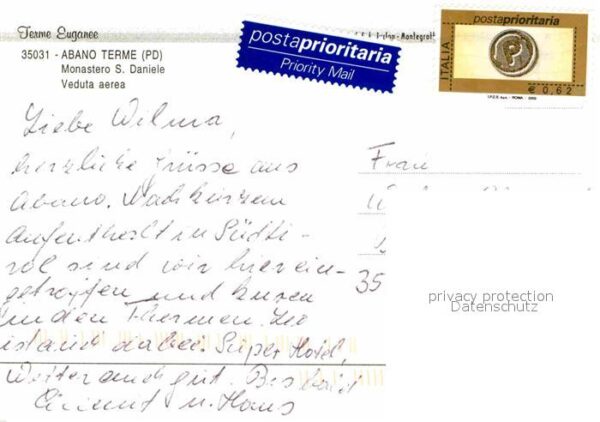 Terme Euganee
35031 - ABANO TERME (PD)
Monastero S. Daniele
Veduta aerea
postaprioritaria
Priority Mail
postaprioritaria
ITALIA
€ 0,62
Liebe Wilma,
herzliche Grüsse aus
Abano. Nach kurzem
Aufenthalt in Südti-
rol sind wir hier ein-
getroffen und kuren
in den Thermen.
ist and dabei. Super Hotel,
Wetter auch gut. Bis bald
u. Hans
Frau
35
privacy protection
Datenschutz